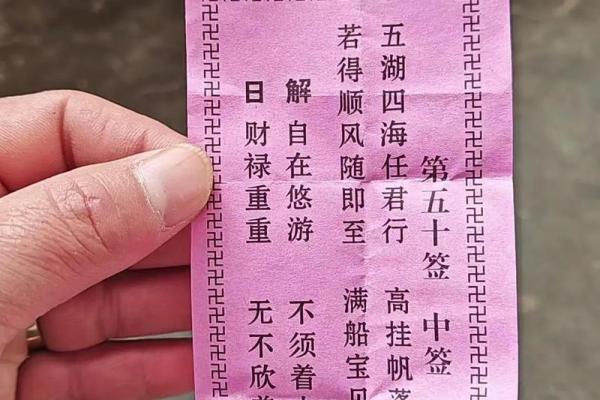 第五十签 中签
五湖四海任君行 高挂帆
若得顺风随即至 满船宝
解 自在悠游 不须着
日 财禄重重 无不欣